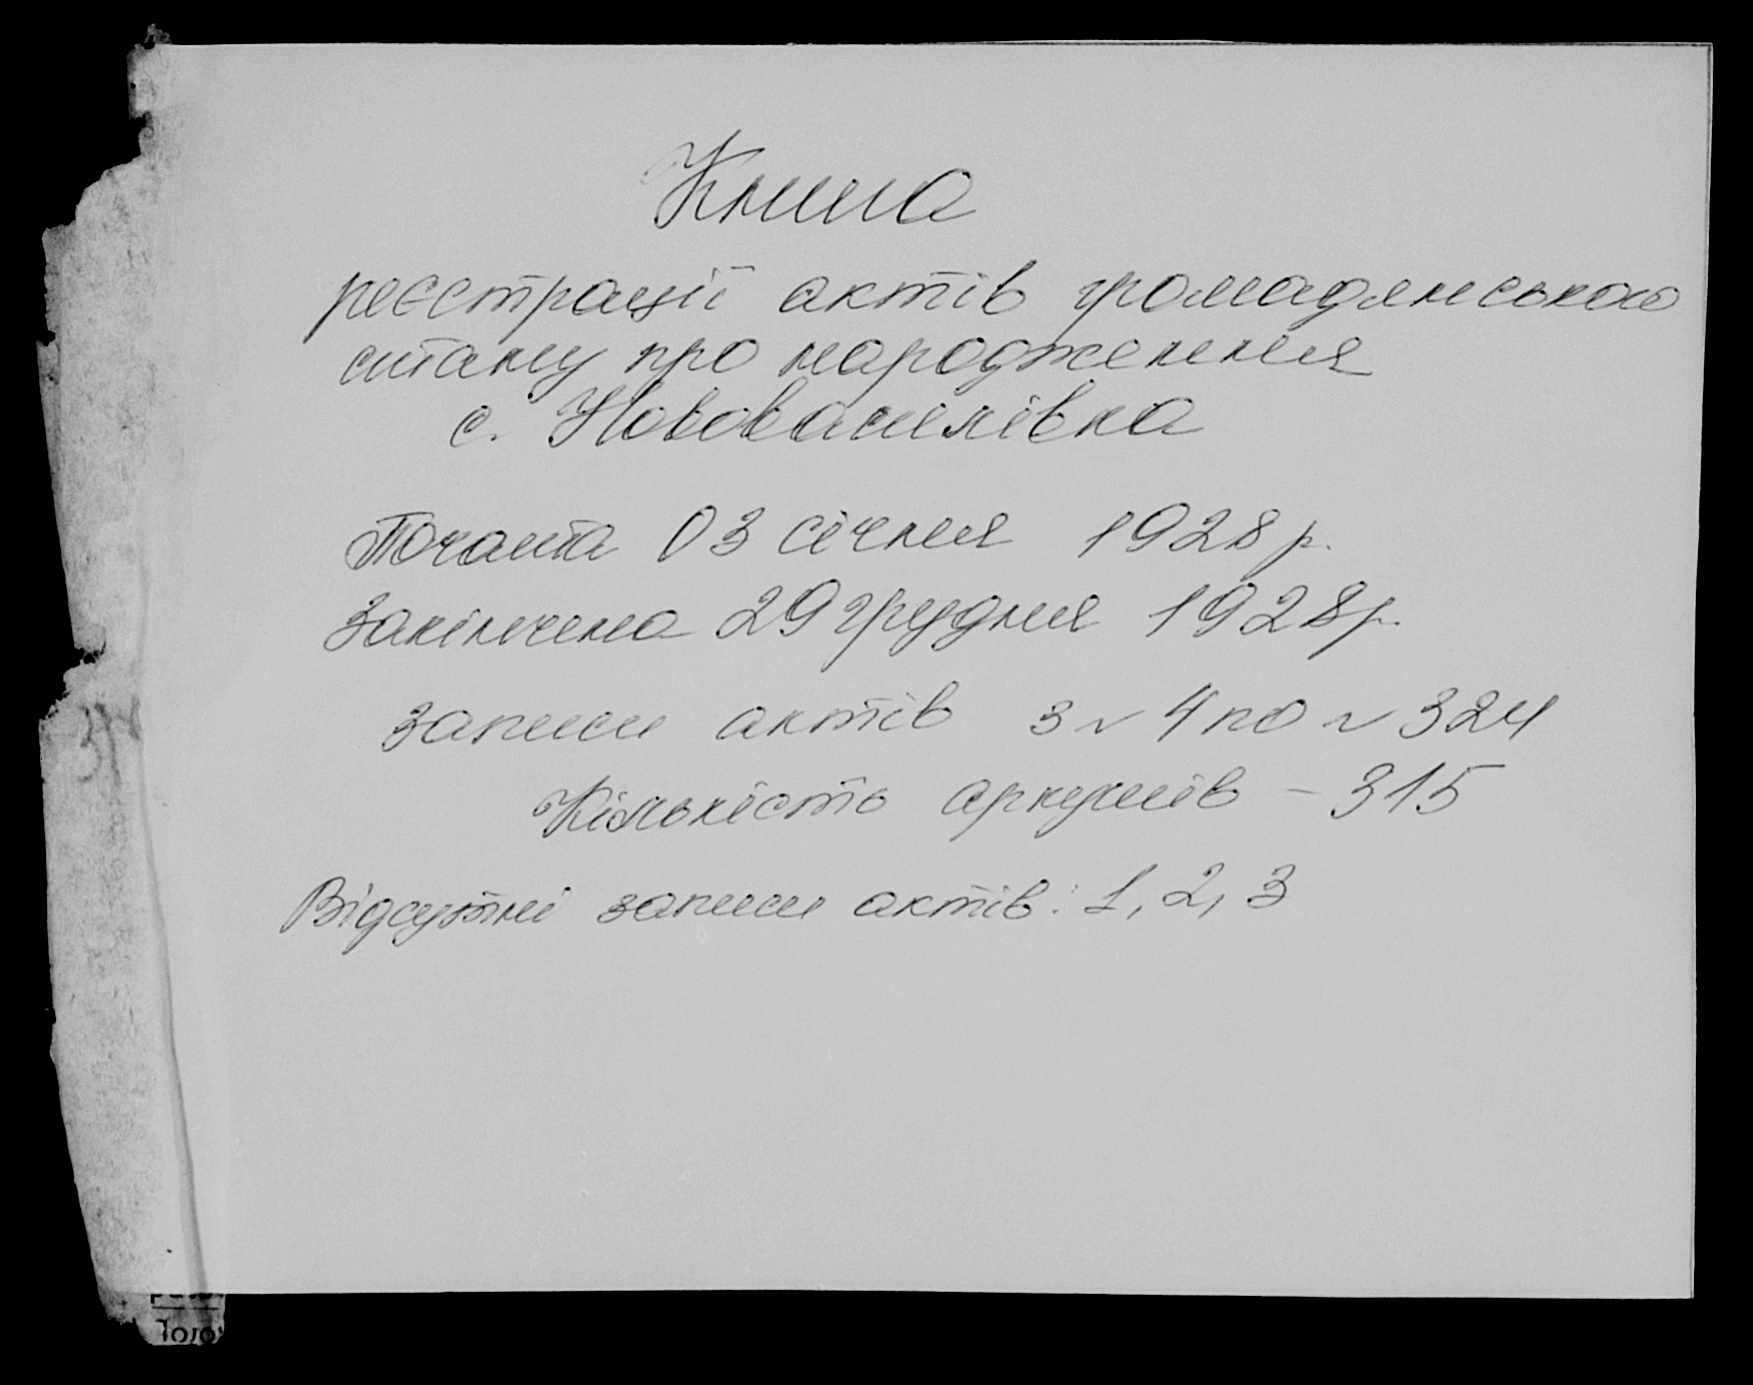 Книга
реєстрації актів громадянського
стану про народження
с. Нововасилівка
Почата 03 січня 1928 р.
Закінчена 29 грудня 1928 р.
записи актів з № 4 по № 324
Кількість аркушів – 315
Відсутні записи актів: 1, 2, 3